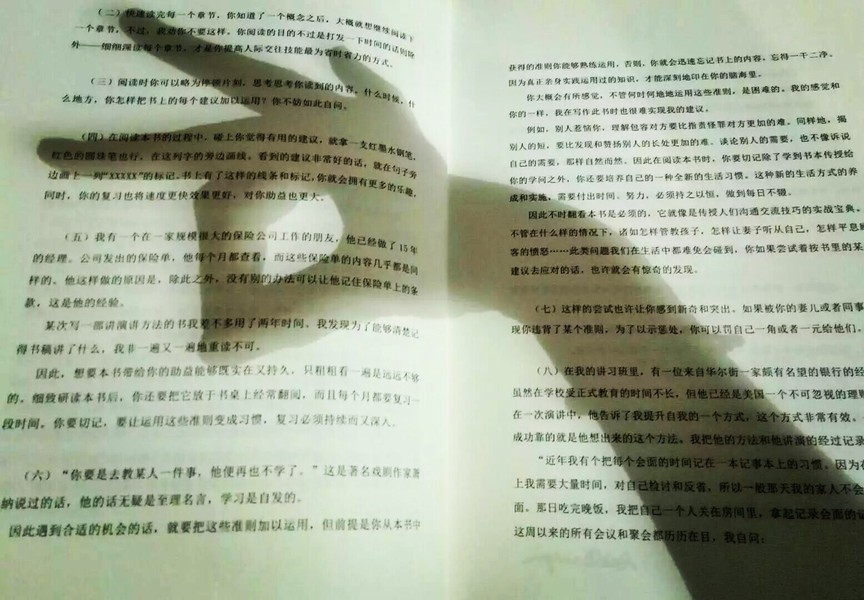 （二）快速读完每一个章节，你知道了一个概念之后，大概就想继续阅读下
一个章节，不过，我恳你不要这样。你阅读的目的不过是打发一下时间的话则除
外——细细深读每个章节，才是你提高人际交往技能最为省时省力的方式。
（三）阅读时你可以略为停顿片刻，思考思考你读到的内容。什么时候，什
么地方，你怎样把书上的每个建议加以运用？你不妨如此自问。
（四）在阅读本书的过程中，碰上你觉得有用的建议，就拿一支红墨水钢笔，
红色的圆珠笔也行，在这列字的旁边画线。看到的建议非常好的话，就在句子旁
边画上一列“XXXXX”的标记。书上有了这样的线条和标记，你就会拥有更多的乐趣，
同时，你的复习也将速度更快效果更好，对你助益也更大。
（五）我有一个在一家规模很大的保险公司工作的朋友，他已经做了15年
的经理。公司发出的保险单，他每个月都查看，而这些保险单的内容几乎都是同
样的。他这样做的原因是，除此之外，没有别的办法可以让他记住保险单上的条
款，这是他的经验。
某次写一部讲演讲方法的书我差不多用了两年时间。我发现为了能够清楚记
得书稿讲了什么，我非一遍又一遍地重读不可。
因此，想要本书带给你的助益能够既实在又持久，只粗粗看一遍是远远不够
的。细致研读本书后，你还要把它放于书桌上经常翻阅，而且每个月都要复习一
段时间。你要切记，要让运用这些准则变成习惯，复习必须持续而又深入。
（六）“你要是去教某人一件事，他便再也不学了。”这是著名戏剧作家萧
纳说过的话，他的话无疑是至理名言，学习是自发的。
因此遇到合适的机会的话，就要把这些准则加以运用，但前提是你从本书中
获得的准则你能够熟练运用，否则，你就会迅速忘记书上的内容，忘得一干二净。
因为真正亲身实践运用过的知识，才能深刻地印在你的脑海里。
你大概会有所感觉，不管何时何地地运用这些准则，是困难的。我的感觉和
你的一样，我在写作此书时也很难实现我的建议。
例如，别人惹恼你，理解包容对方要比指责怪罪对方更加的难。同样地，揭
别人的短，要比发现和赞扬别人的长处更加的难。谈论别人的需要，也不像诉说
自己的需要，那样自然而然。因此在阅读本书时，你要切记除了学到书本传授给
你的学问之外，你还要培养自己的一种全新的生活习惯。这种新的生活方式的养
成和实施，需要付出时间、努力，必须持之以恒，做到每日不辍。
因此不时翻看本书是必须的，它就像是传授人们沟通交流技巧的实战宝典。
不管在什么样的情况下，诸如怎样管教孩子，怎样让妻子听从自己，怎样平息顾
客的愤怒……此类问题我们在生活中都难免会碰到，你如果尝试着按书里的某
建议去应对的话，也许就会有惊奇的发现。
（七）这样的尝试也许让你感到新奇和突出。如果被你的妻儿或者同事
现你违背了某个准则，为了以示惩处，你可以罚自己一角或者一元给他们。
（八）在我的讲习班里，有一位来自华尔街一家颇有名望的银行的经
虽然在学校受正式教育的时间不长，但他已经是美国一个不可忽视的理财
在一次演讲中，他告诉了我提升自我的一个方式，这个方式非常有效。
成功靠的就是他想出来的这个方法。我把他的方法和他讲演的经过记录
“近年我有个把每个会面的时间记在一本记事本上的习惯。因为在
上我需要大量时间，对自己检讨和反省，所以一般那天我的家人不会
面。那日吃完晚饭，我把自己一个人关在房间里，拿起记录会面的记
这周以来的所有会议和聚会都历历在目，我自问：